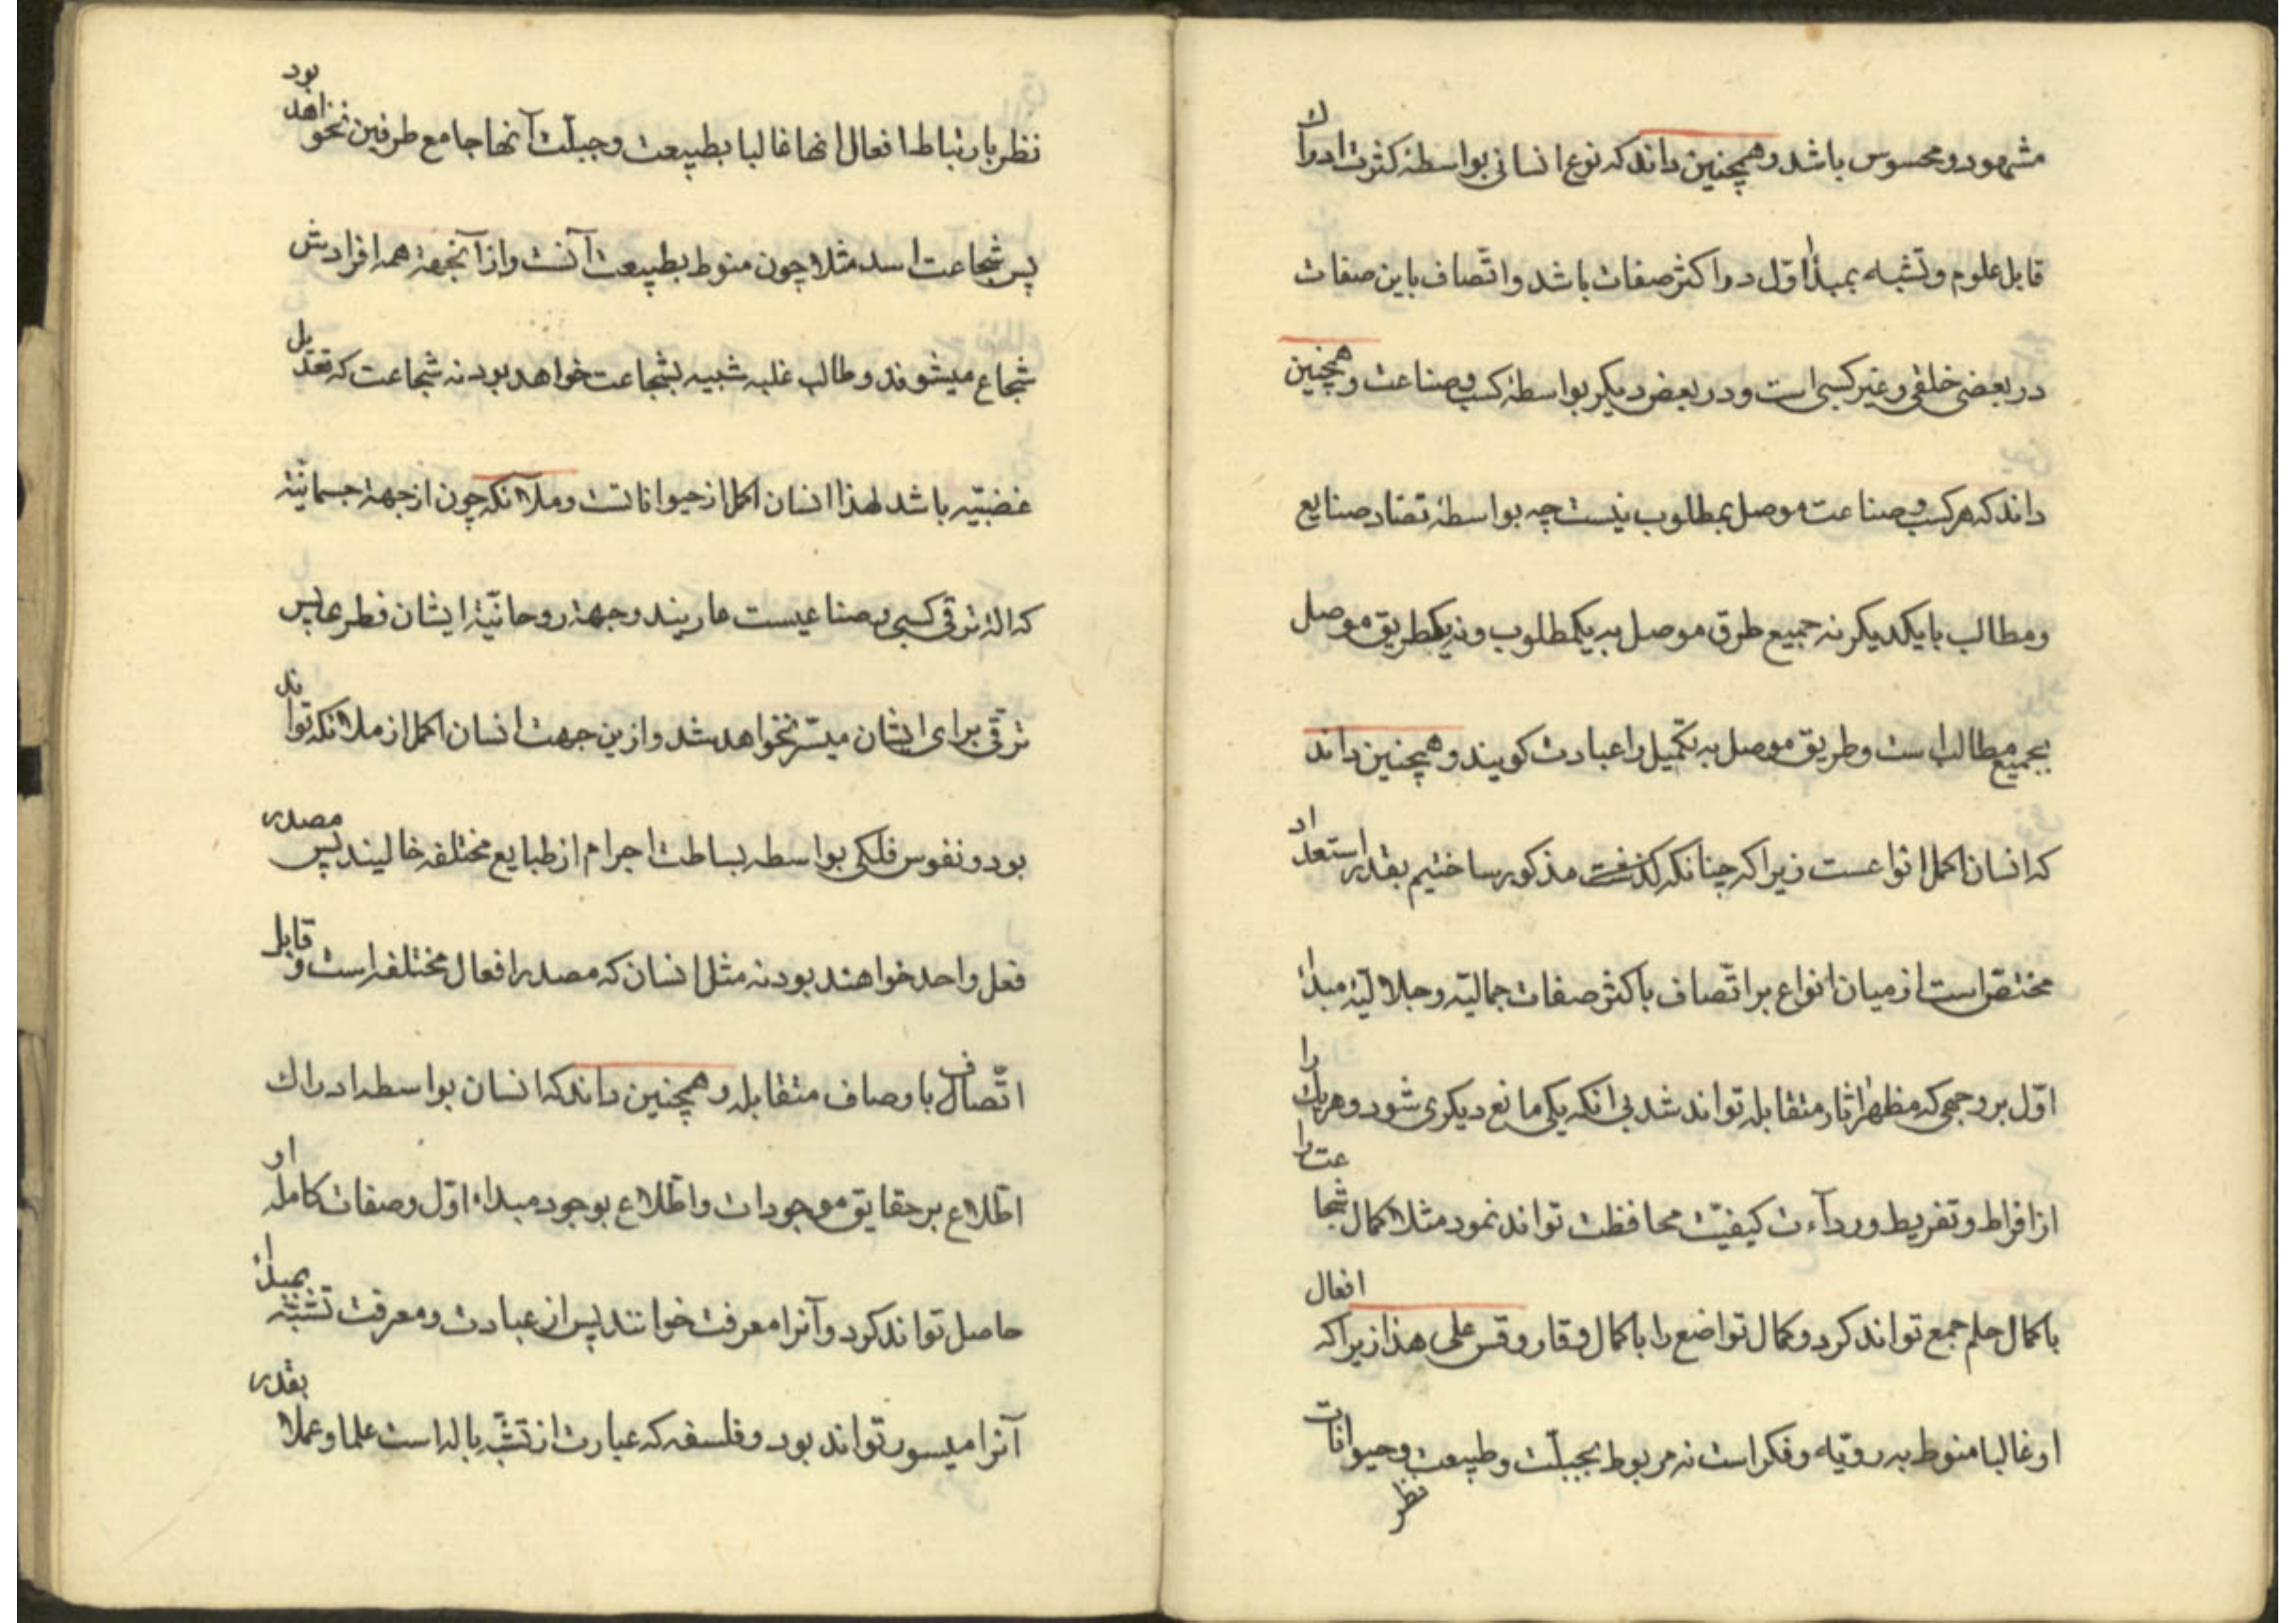 مشهود و محسوس باشد و همچنین داند که نوع انسانی بواسطهٔ کثرت ادراک
قابل علوم و تشبه بمبدأ اوّل در اکثر صفات باشد و اتّصاف باین صفات
در بعضی خلقی و غیر کسبی است و در بعض دیکر بواسطهٔ کسب و صناعت و همچنین
داند که هر کسب و صناعت موصل بمطلوب نیست چه بواسطهٔ تضاد صنایع
و مطالب با یکدیکر نه جمیع طرق موصل به یکمطلوب و نه یکطریق موصل
بجمیع مطالب است و طریق موصل به تکمیل را عبادت کویند و همچنین داند
که انسان اکمل انواعست زیرا که چنانکه مذکور ساختیم بقدر استعداد
مختصّ است از میان انواع بر اتّصاف باکثر صفات جمالیّه و جلالیّهٔ مبداء
اوّل بر وجهی که مظهر اثار متقابله تواند شد بی انکه یکی مانع دیکری شود و هر یک را
از افراط و تفریط و ردآءت کیفیّت محافظت تواند نمود مثلا کمال شجاعت را
با کمال حلم جمع تواند کرد و کمال تواضع را با کمال وقار و قس علی هذا زیرا که افعال
او غالبا منوط به رویّه و فکر است نه مربوط بجبلّت و طبیعت و حیوانات
نظر
نظر بارتباط افعال انها غالبا بطبیعت و جبلّت آنها جامع طرفین نخواهد بود
پس شجاعت اسد مثلا چون منوط بطبیعت آنست و از آنجهة همه افرادش
شجاع میشوند و طالب غلبه شبیه بشجاعت خواهد بود نه شجاعت که تعدیل
غضبیّه باشد لهذا انسان اکمل از حیواناتست و ملائکه چون از جهة جسمانیّة
که الهٔ ترقی کسبی و صناعیست عاریند و جهة روحانیّة ایشان فطری پس
ترقّی برای ایشان میسّر نخواهد شد و ازین جهت انسان اکمل از ملائکه تواند
بود و نفوس فلکی بواسطه بساطت اجرام از طبایع مختلفه خالیند پس مصدر
فعل واحد خواهند بود نه مثل انسان که مصدر افعال مختلفه است و قابل
اتّصاف باوصاف متقابله و همچنین داند که انسان بواسطه ادراک
اطّلاع بر حقایق موجودات و اطّلاع بوجود مبداء اوّل و صفات کامله او
حاصل تواند کرد و آنرا معرفت خوانند پس از عبادت و معرفت تشبّه بمبداء
آنرا میسور تواند بود و فلسفه که عبارت از تشبّه باله است علما و عملا بقدر